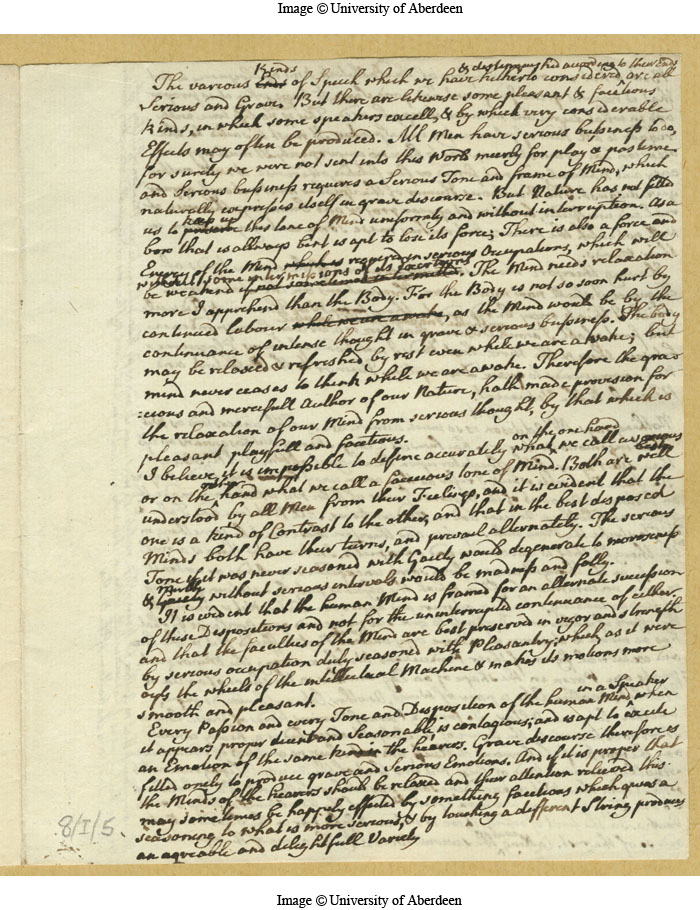 Image © University of Aberdeen
Kinds & distinguished according to their Ends
The various Ends of Speech which we have hitherto considered are all
Serious and Grave. But there are likewise some pleasant & facetious
Kinds, in which some speakers excell, & by which very considerable
Effects may often be produced. All Men have serious bussiness to do,
for surely we were not sent into this World meerly for play & pastime
and Serious bussiness requires a Serious Tone and frame of Mind, which
naturally expresses itself in grave discourse. But Nature has not fitted
keep up
us to preserve this tone of Mind uniformly and without interruption. As a
bow that is allways bent is apt to lose its force; There is also a force and
Energy of the Mind which is required in serious Occupations, which will
without some intermissions of its exertions
be weakened if not sometimes intermitted. The Mind needs relaxation
more I apprehend than the Body. For the Body is not so soon hurt by
continued labour while we are awake, as the Mind would be by the
continuance of intense thought in grave & serious bussiness. The body
may be relaxed & refreshed by rest even while we are awake; but
mind never ceases to think while we are awake. Therefore the gra=
=cious and mercifull Author of our Nature, hath made provision for
the relaxation of our Mind from serious thought, by that which is
pleasant playfull and facetious.
on the one hand
I believe it is impossible to define accurately what we call a serious
other
or on the hand what we call a facetious tone of Mind. Both are well
understood by all Men from their Feelings, and it is evident that the
one is a kind of Contrast to the other, and that in the best disposed
Minds both have their turns, and prevail alternately. The serious
Tone if it was never seasoned with Gaiety would degenerate to moroseness
Mirth
& Gaiety without serious intervals would be madness and folly.
It is evident that the human Mind is framed for an alternate succession
of these Dispositions and not for the uninterrupted continuance of either
and that the faculties of the Mind are best preserved in vigor and strength
by serious occupation duly seasoned with Pleasantry; which as it were
oyls the wheels of the intellectual Machine & makes its motions more
smooth and pleasant.
in a Speaker
Every Passion and every Tone and Disposition of the human Mind, when
it appears proper decent and Seasonable is contagious; and is apt to excite
an Emotion of the same kind in the hearers. Grave discourse therefore is
fitted onely to produce grave and Serious Emotions. And if it is proper that
the Minds of the hearers should be relaxed and their attention relieved this
may sometimes be happily effected by something facetious which gives a
seasoning to what is more serious, & by touching a different String produces
an agreable and delightfull Variety
8/I/5.
Image © University of Aberdeen